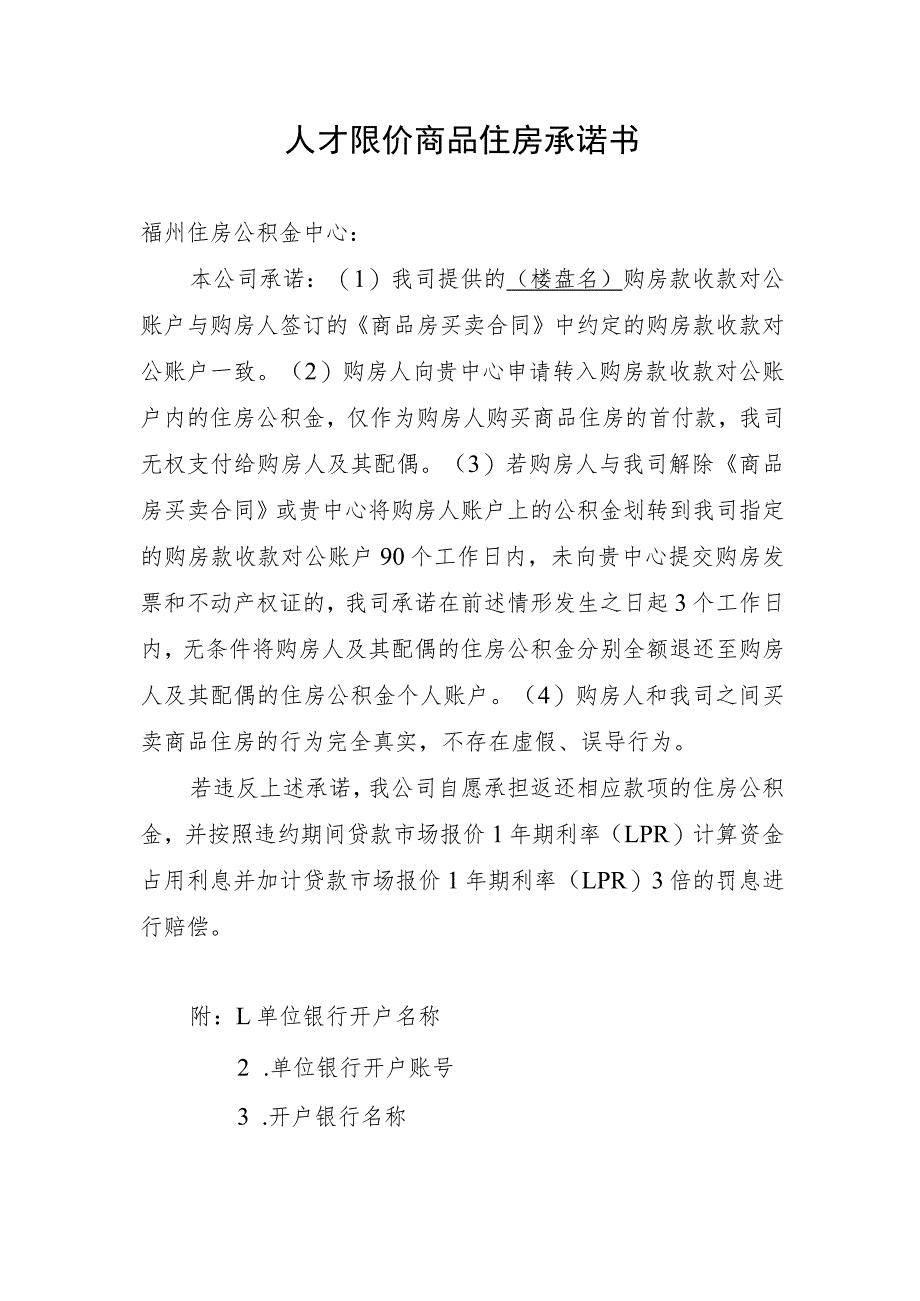 人才限价商品住房承诺书
福州住房公积金中心：
本公司承诺：（1）我司提供的（楼盘名）购房款收款对公
账户与购房人签订的《商品房买卖合同》中约定的购房款收款对
公账户一致。（2）购房人向贵中心申请转入购房款收款对公账
户内的住房公积金，仅作为购房人购买商品住房的首付款，我司
无权支付给购房人及其配偶。（3）若购房人与我司解除《商品
房买卖合同》或贵中心将购房人账户上的公积金划转到我司指定
的购房款收款对公账户 90 个工作日内，未向贵中心提交购房发
票和不动产权证的，我司承诺在前述情形发生之日起 3 个工作日
内，无条件将购房人及其配偶的住房公积金分别全额退还至购房
人及其配偶的住房公积金个人账户。（4）购房人和我司之间买
卖商品住房的行为完全真实，不存在虚假、误导行为。
若违反上述承诺，我公司自愿承担返还相应款项的住房公积
金，并按照违约期间贷款市场报价 1 年期利率（LPR）计算资金
占用利息并加计贷款市场报价 1 年期利率（LPR）3 倍的罚息进
行赔偿。
附：L 单位银行开户名称
2 .单位银行开户账号
3 .开户银行名称